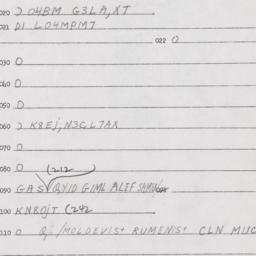 020 ) 04BM G3LA,XT
021 DI L04MPM7
022 0
030 0
040 0
050 0
060 ) K8Ej,N3CL7AX
070 0
080 0 (212
090 GAS QYID GIML ALEF
100 KN80jT (242
110 0 Q, /MOLDEVIS+ RUMENIS+ CLN